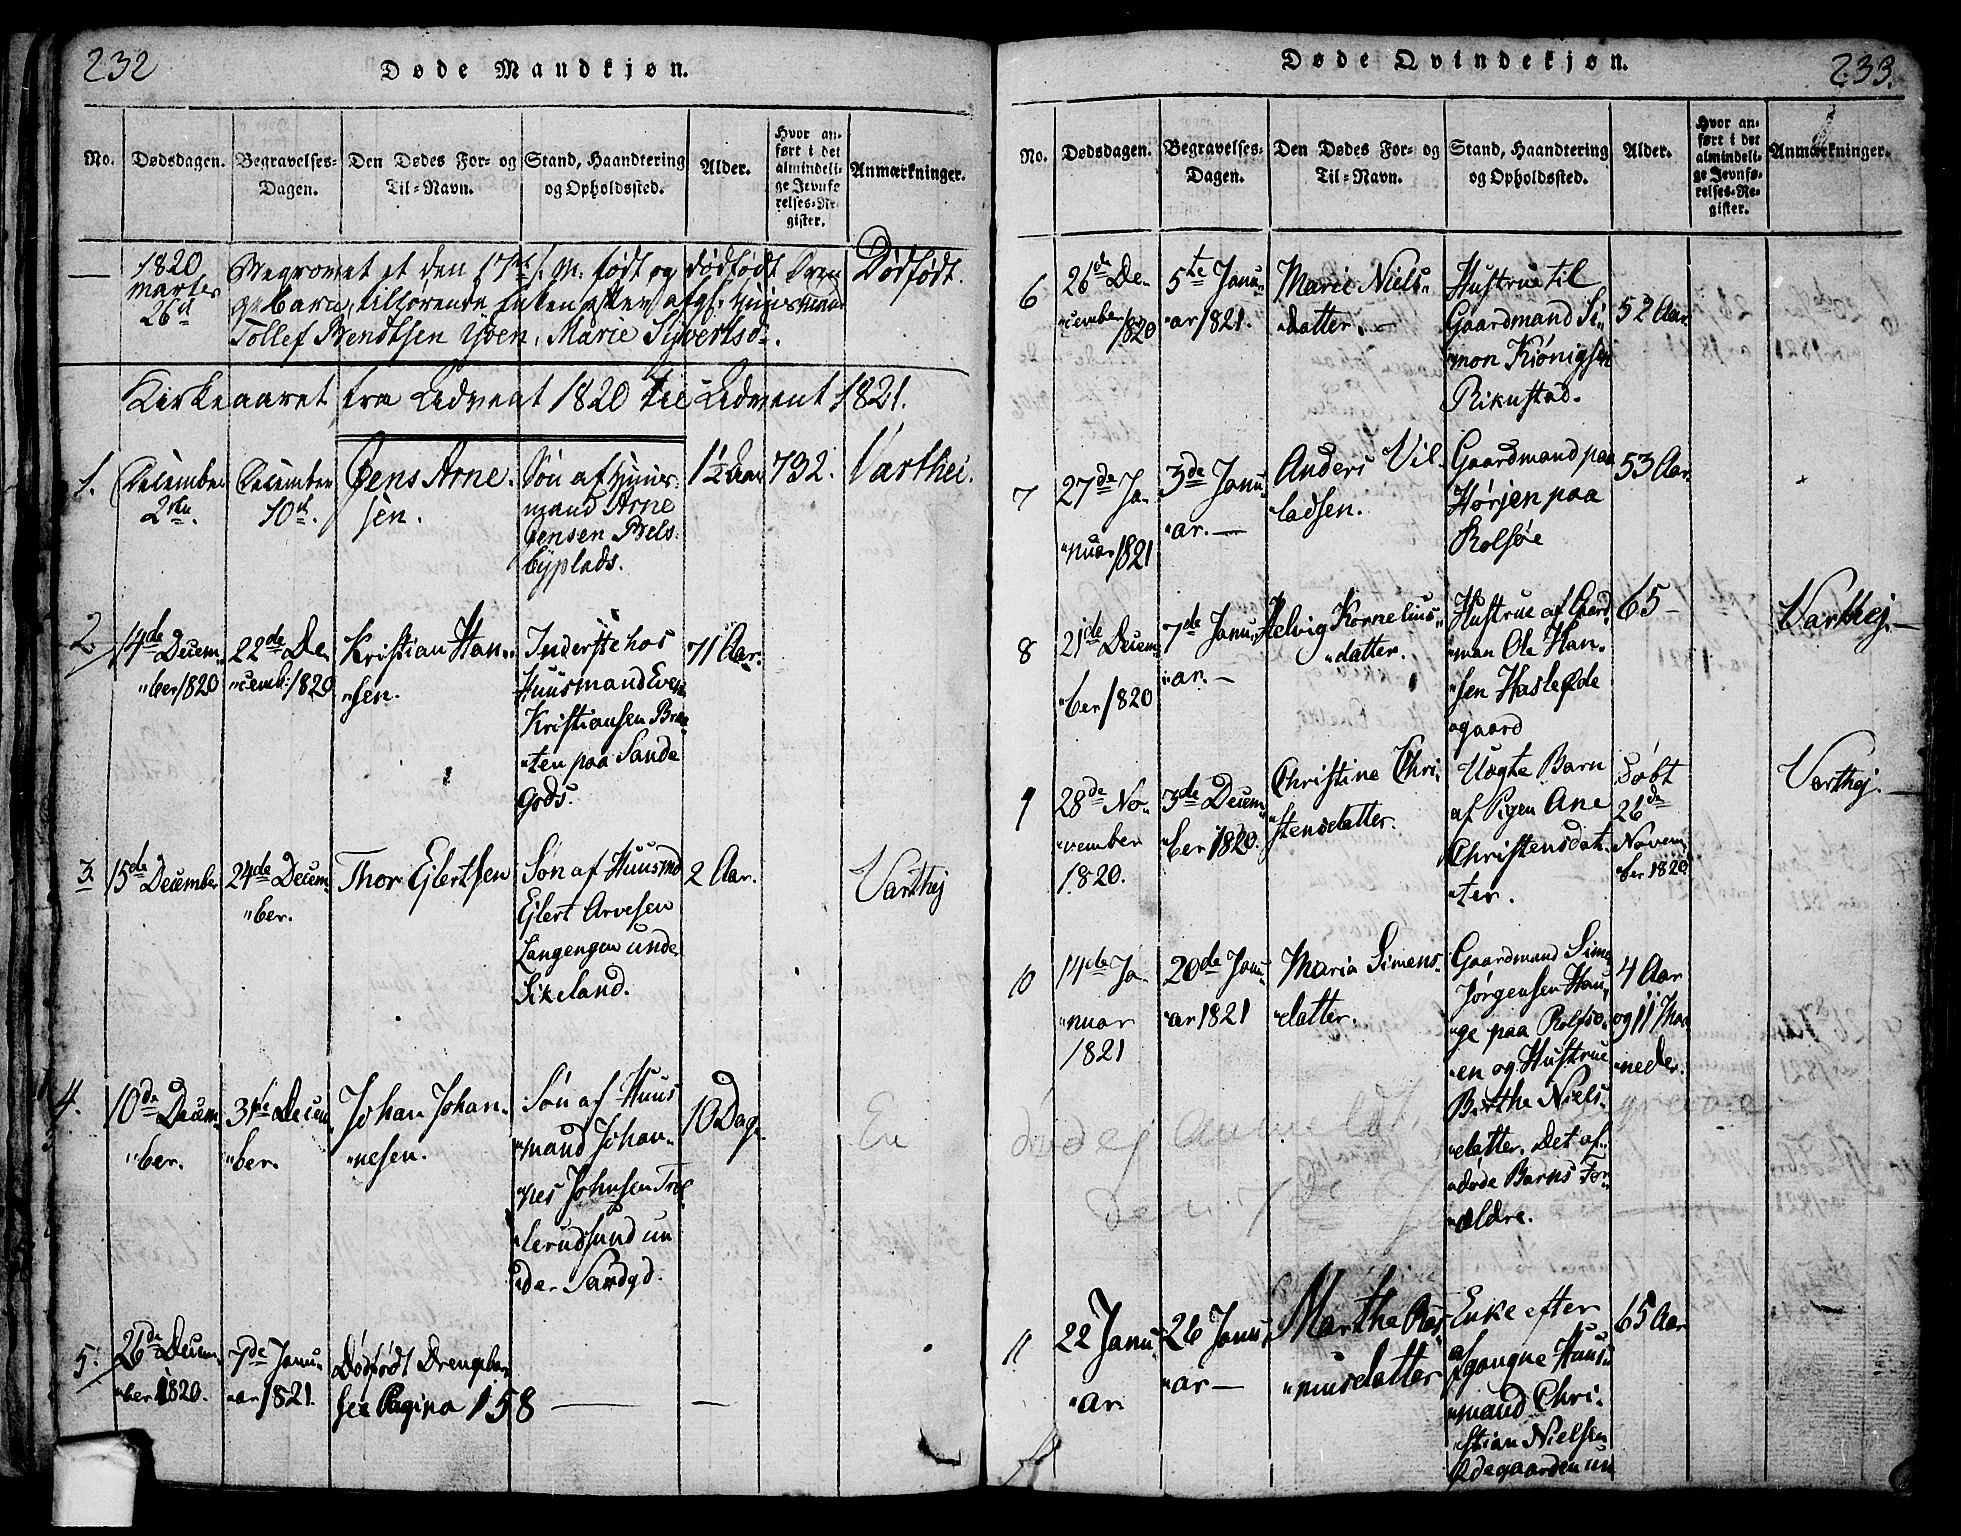 232
Døde Mandkjøn.
No. Dødsdagen. Begravelses-Dagen. Den Dødes For- og Til-Navn. Stand, Haandtering og Opholdssted. Alder. Hvor anført i det almindelige Jevnførelses-Register. Anmærkninger.
— 1820
marts
26d
Begravet et den 17de f. M. født og dødført Dren
gebarn, tilhørende Enken efter afg. Huusmand
Tollef Bendtsen, Marie Syverts d.
Dødfødt.
Kirkeaaret fra Advent 1820 til Advent 1821.
1. December
2den.
December
10d.
Jens Arne-
sen.
Søn af Huus-
mand Arne
Jensen Bels-
byplads.
1½ Aar
732.
Varthei.
2 14de
Decem-
"ber 1820
22de De-
"cemb: 1820
Kristian Han-
"sen.
Inderste hos
Huusmand Even
Kristiansen Braa-
"ten paa Sande
Gods.
71 Aar.
3. 15de December
24de Decem-
"ber.
Thor Ejlertsen
Søn af Huusmd
Ejlert Arvesen
Langengen under
Sikeland.
2 Aar.
Varthej
4. 10de
Decem-
"ber.
31te Decem-
"ber.
Johan Johan-
"nesen.
Søn af Huus
"mand Johan-
"nes Johnsen
"lerudsund un
"der Sandgd.
10 Dage
En
5. 26de Decem-
"ber 1820.
7de Janu-
"ar 1821.
Dødfødt Drengebarn
see Pagina 158 — —
233.
Døde Qvindekjøn.
No. Dødsdagen. Begravelses-Dagen. Den Dødes For- og Til-Navn. Stand, Haandtering og Opholdssted. Alder. Hvor anført i det almindelige Jevnførelses-Register. Anmærkninger.
6 26de De-
"cember 1820
5te Janu-
"ar 1821.
Marie Niels-
"datter. —
Hustrue til
Gaardmand Si-
"mon Kiönigsen
Rikustad.
52 Aar.
7 27de Ja-
"nuar 1821
3de Janu-
"ar. —
Anders Vil-
"ladsen.
Gaardmand paa
Hørjen paa
Rolsøe
53 Aar.
8 21de Decem-
"ber 1820
7de Janu-
"ar. —
Helvig Kornelius-
"datter.
Hustrue af Gaard
"man Ole Han-
"sen Hasle Øde
"gaard
65 —
Varthej. —
9 28de No-
"vember
1820.
3de Decem-
"ber 1820.
Christine Chri-
"stensdatter.
Uægte Barn
af Pigen Ane
Christensdat-
"ter.
Døbt
26de
Novem-
ber 1820
Varthej. —
10 14de Ja-
"nuar
1821
20de Janu-
"ar 1821
Maria Simens-
"datter.
Gaardmand Simen
Jørgensen Hau-
"ge paa Rolfsø-
"en og Hustrue
Birthe Niels-
"datter. Det af-
"døde Barns For-
"ældre.
4 Aar
og 11 Maa
"neder.
11 22 Janu-
"ar
26 Janu-
"ar —
Marthe Ras-
"musdatter
Enke efter
afgangne Huus-
"mand Chri-
"stian Nielsen
Ødegaarden un
65 Aar